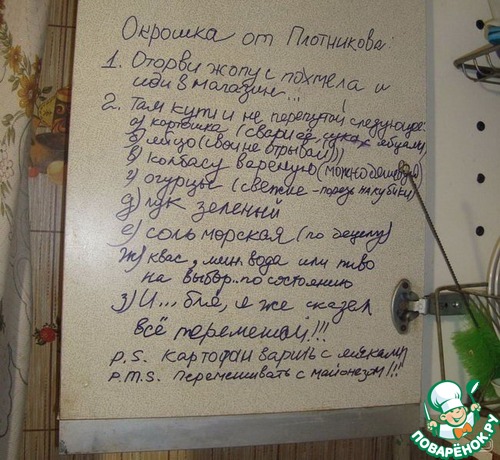 Окрошка от Плотникова:
1. Оторви жопу с похмела и
иди в магазин...!
2. Там купи и не перепутай следующее:
а) картошка (свари её, сука, с яйцами)
б) яйцо (свои не отрывай)))
в) колбасу вареную (можно дешёвую)
г) огурцы (свежие - порежь на кубики)
д) лук зеленый
е) соль морская (по децелу)
ж) квас, мин. вода или пиво
на выбор.. по состоянию
з) И... бля, я же сказал
всё перемешай!!!
P.S. Картофан варить с яйками
P.M.S. Перемешивать с майонезом!!!
ПОВАРЁНОК.РУ